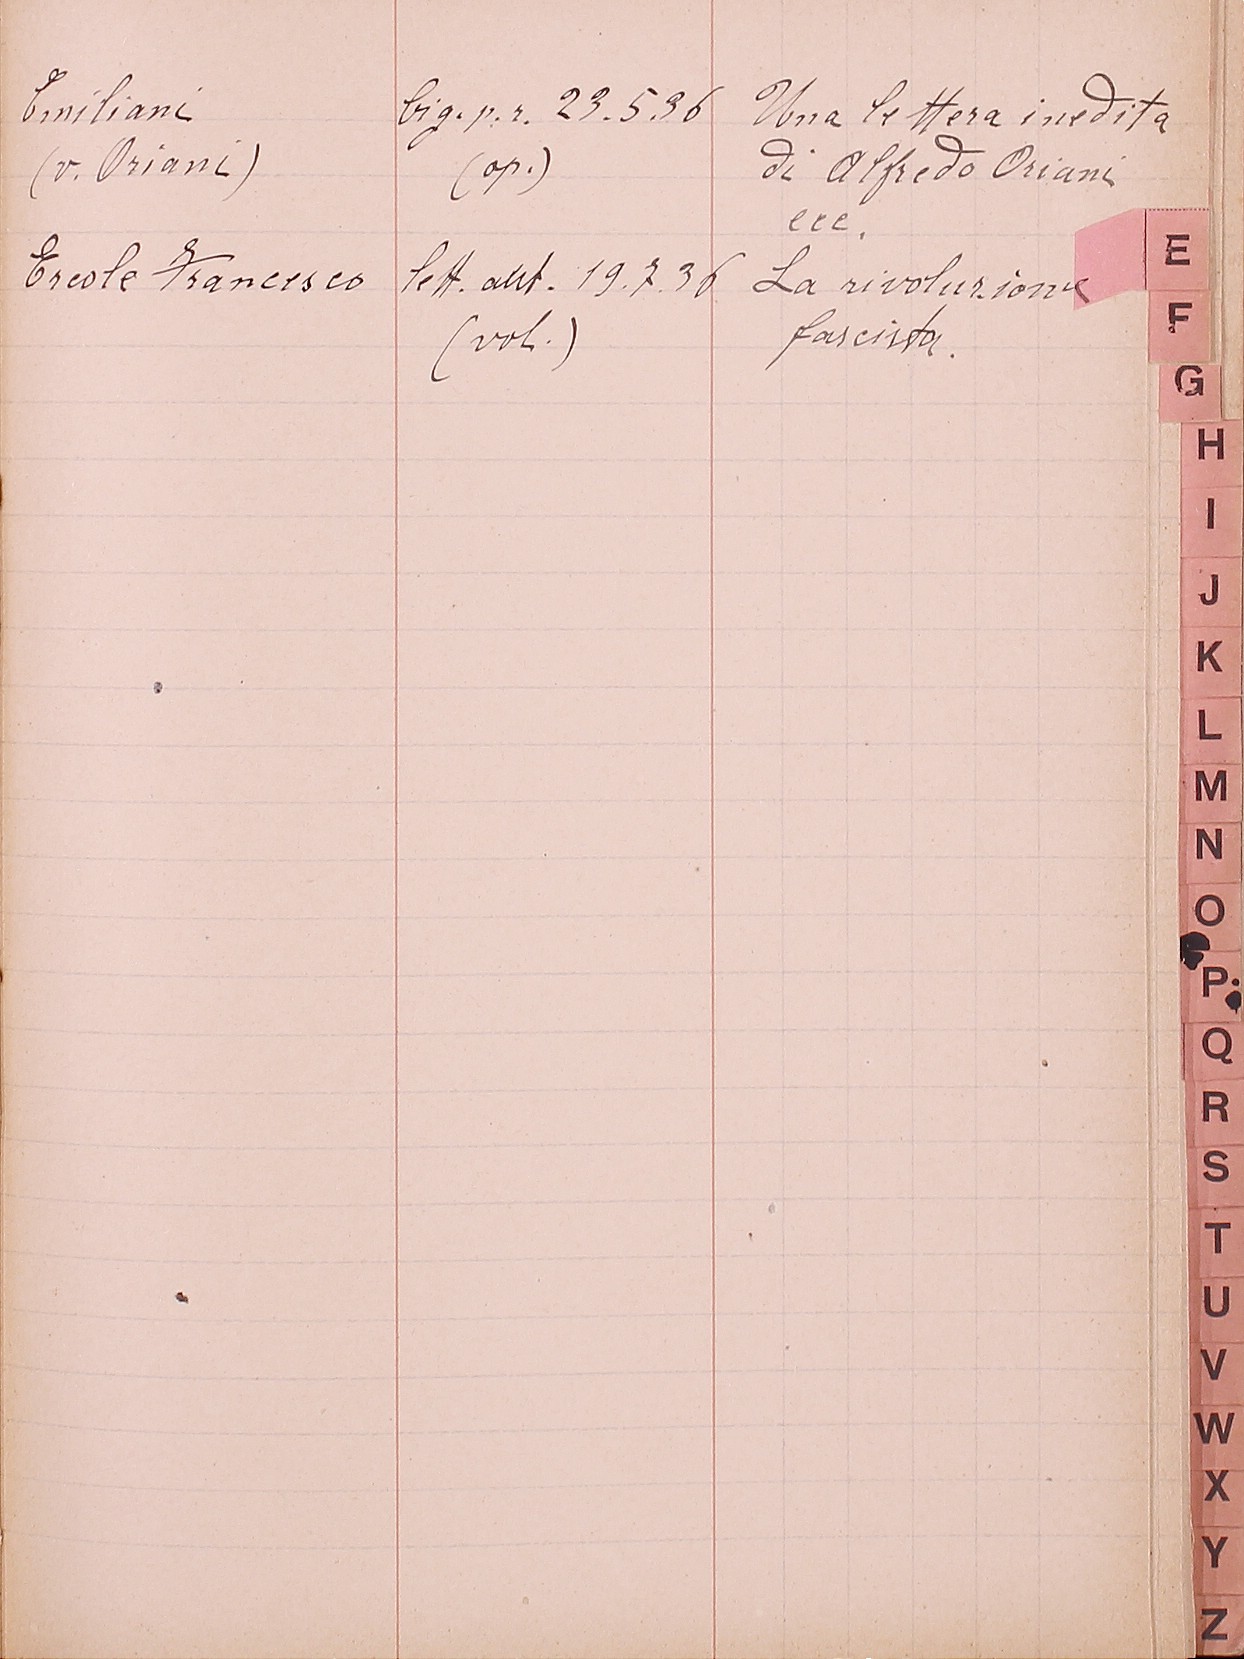 Emiliani big. p. r. 23.5.36 Una lettera inedita
(v. Oriani) (op.) di Alfredo Oriani
ecc.
Ercole Francesco lett. aut. 19.7.36 La rivoluzione
(vol.) fascista.
E
F
G
H
I
J
K
L
M
N
O
P
Q
R
S
T
U
V
W
X
Y
Z